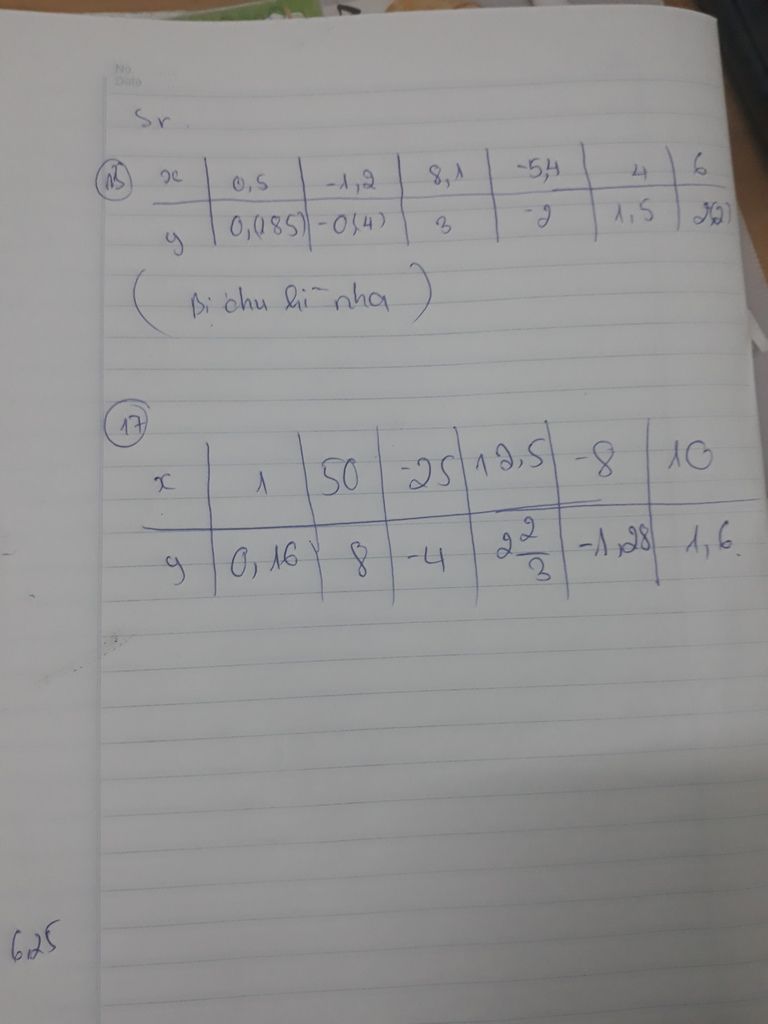 No.
Date
Sr.
15 x 0,5 -1,2 8,1 -5,4 4 6
y 0,(185) -0,(4) 3 -2 1,5 2,(2)
17
x 1 50 -25 12,5 -8 10
y 0,16 8 -4 2 2/3 -1,28 1,6.
6,25